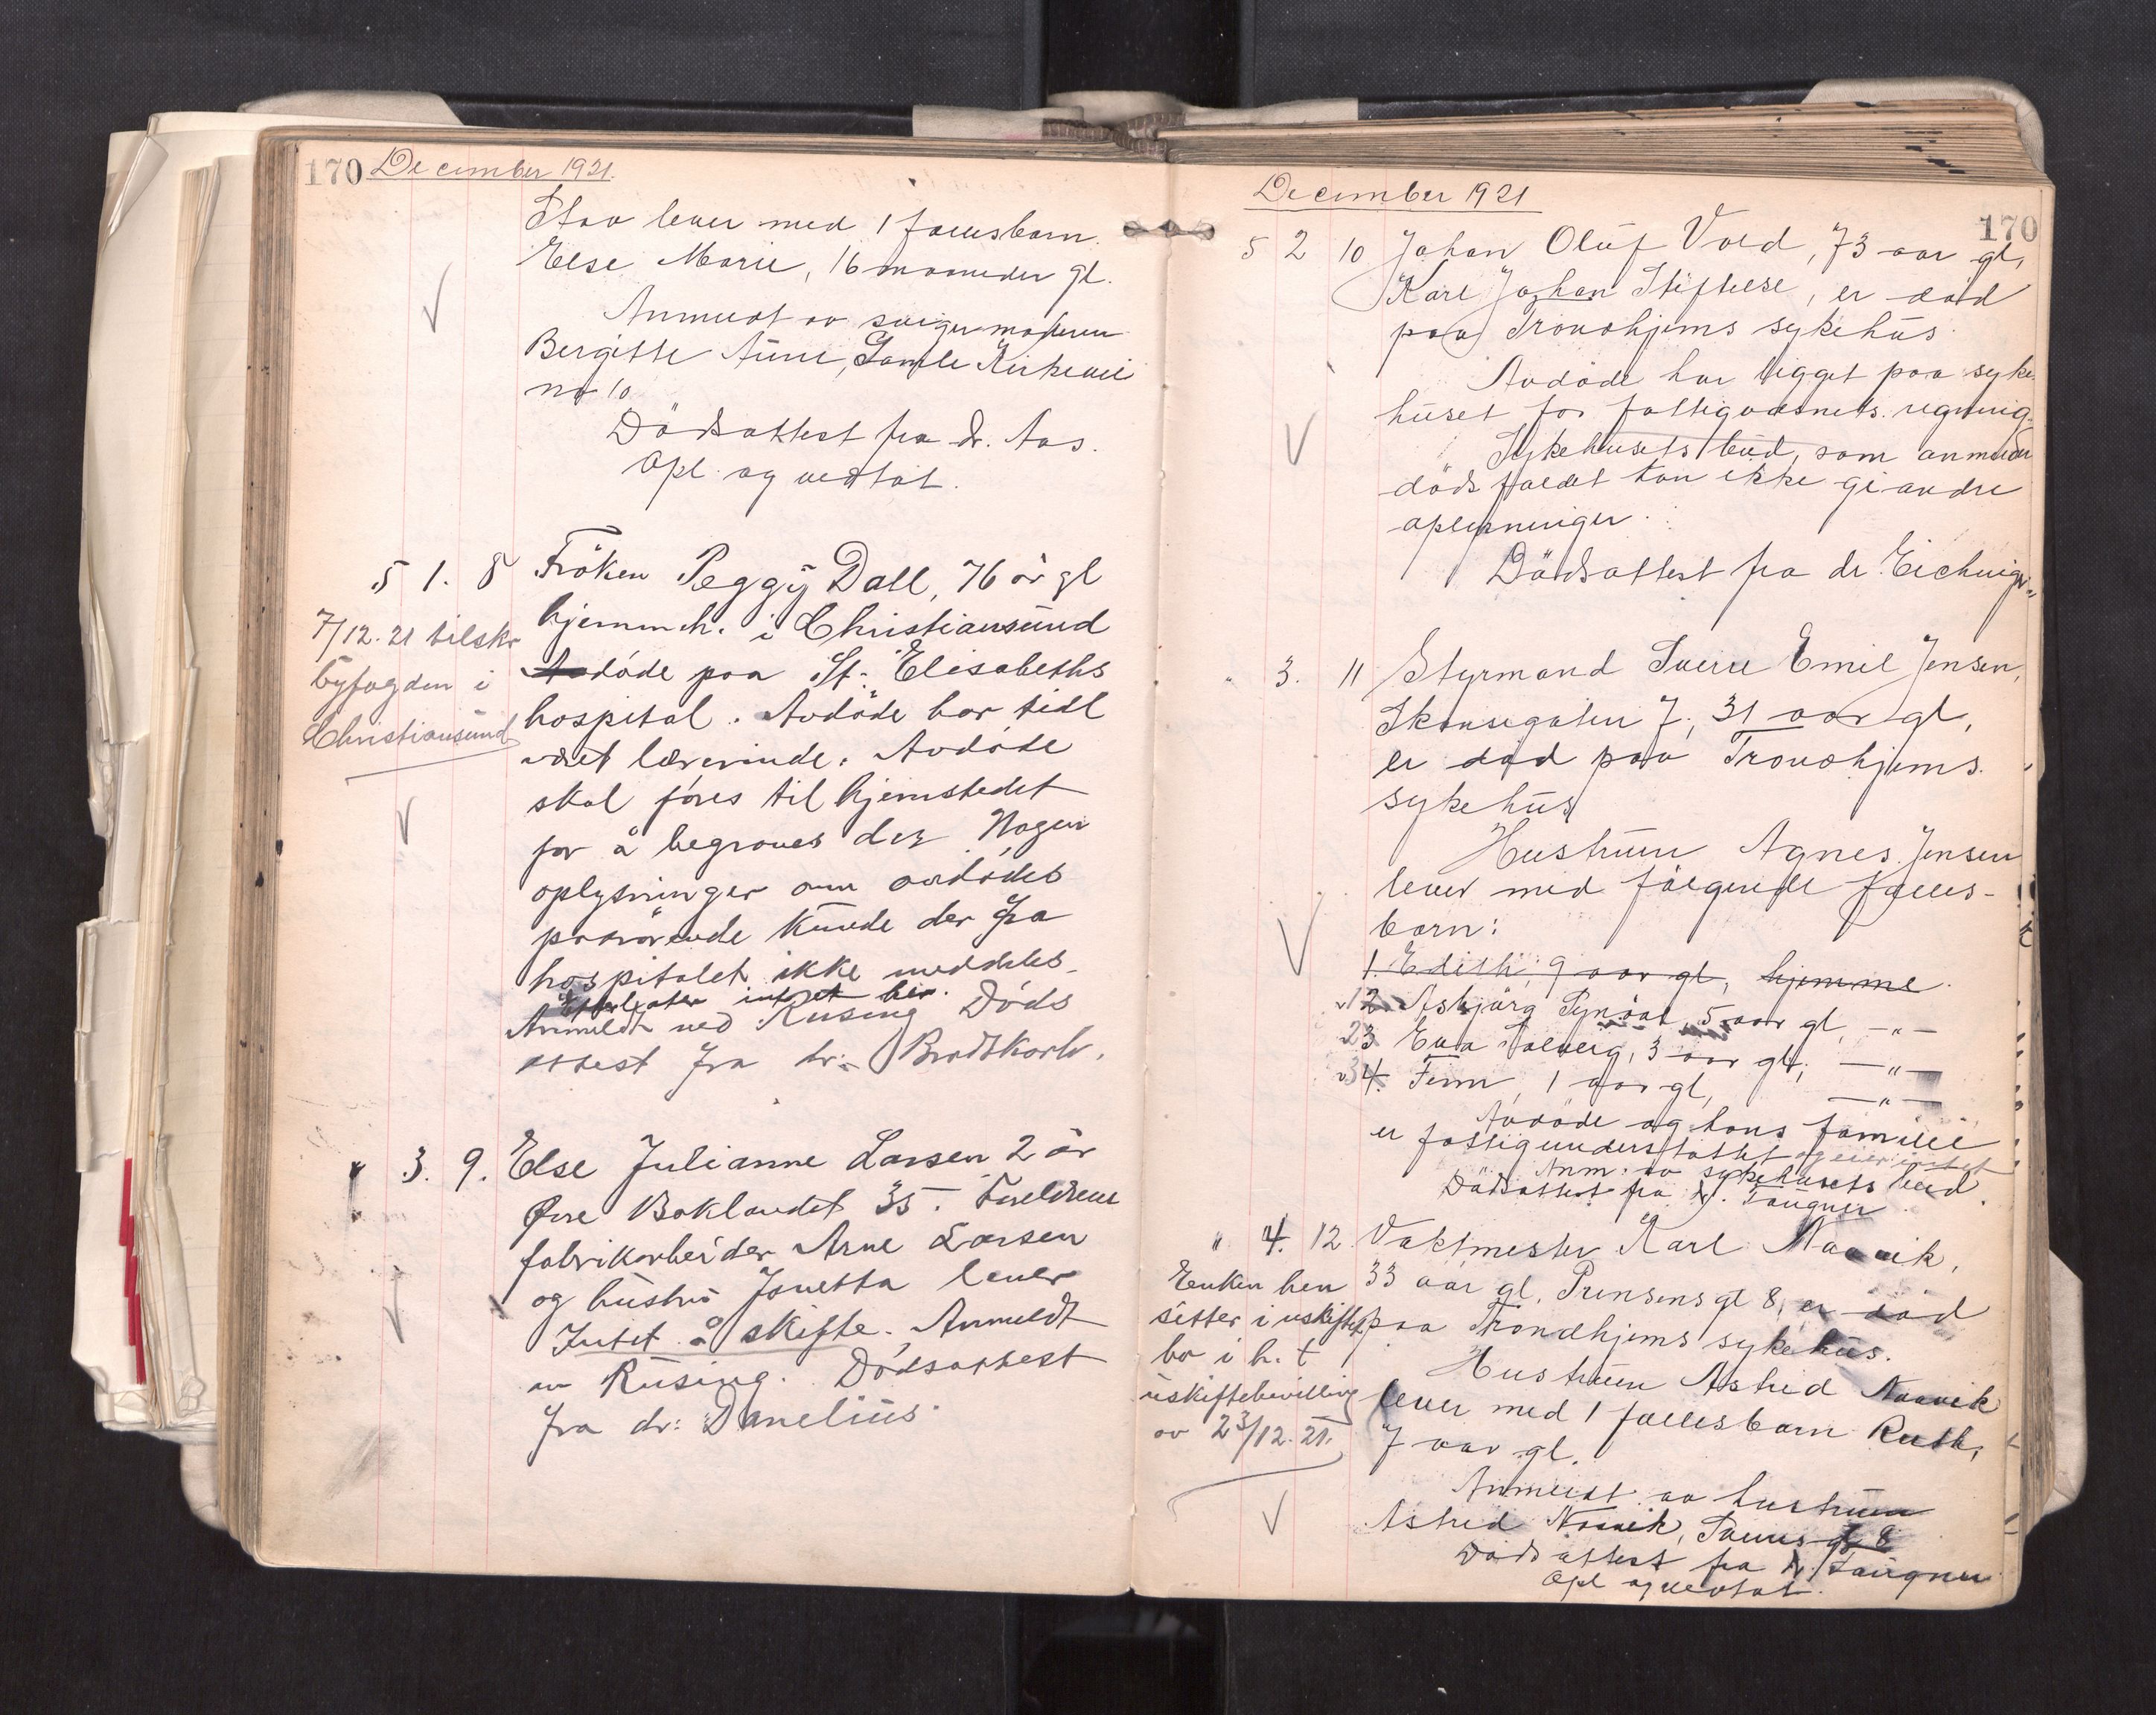 170 December 1921.
Stav lever med 1 fællesbarn
Else Marie, 16 maaneder gl.
Anmeldt av svigermoderen
Bergitte Aune, Gamle Kirkevei
no 10
Dödsattest fra dr. Aas.
Opl. og vedtat.
5 1. 8 Fröken Peggy Dall, 76 år gl
hjemmeh. i Christiansund
döde paa St. Elisabeths
hospital. Avdöde har tidl
været lærerinde. Avdöde
skal föres til hjemstedet
for å begraves der. Nogen
oplysninger om avdödes
paarörende kunde der fra
hospitalet ikke meddeles.
Efterlater intet her.
Anmeldt ved Rusing Döds
attest fra dr: Brodtkorb.
7/12.21 tilskr
byfogden i
Christiansund
" 3. 9. Else Julianne Larsen 2 år
Øvre Baklandet 35. Forældrene
fabrikarbeider Arne Larsen
og hustru Jenetta lever
Intet å skifte. Anmeldt
av Rusing. Dödsattest
fra dr: Danelius.
December 1921
170
5 2 10 Johan Oluf Vold, 73 aar gl,
Karl Johan Stiftelse, er död
paa Trondhjems sykehus.
Avdöde har ligget paa syke-
huset for fattigvæsnets regning.
Sykehusets bud, som anmelder
dödsfaldet kan ikke gi andre
oplysninger.
Dödsattest fra dr
" 3. 11 Styrmand Sverre Emil Jensen,
Skansegaten 7, 31 aar gl,
er död paa Trondhjems
sykehus
Hustruen Agnes Jensen
lever med fölgende fælles-
barn:
1. Edith, 9 aar gl, hjemme.
12 Asbjörg Synöve, 5 aar gl, —"—
23 Eva Solveig, 3 aar gl, —"—
34. Finn, 1 aar gl, —"—
Avdöde og hans familie
er fattigunderstöttet og eier intet
Anm. av sykehusets bud.
Dödsattest fra dr. Taugner.
" 4. 12. Vaktmester Karl Naavik,
33 aar gl, Prinsensgt 8, er död
paa Trondhjems sykehus.
Hustruen Astrid Naavik
lever med 1 fællesbarn Ruth,
7 aar gl.
Anmeldt av hustruen
Astrid Naavik, gt 8
Dödsattest fra dr Taugner
Opl og vedtat.
Enken hen
sitter i uskiftet
bo i h. t
uskiftebevilling
av 23/12.21.